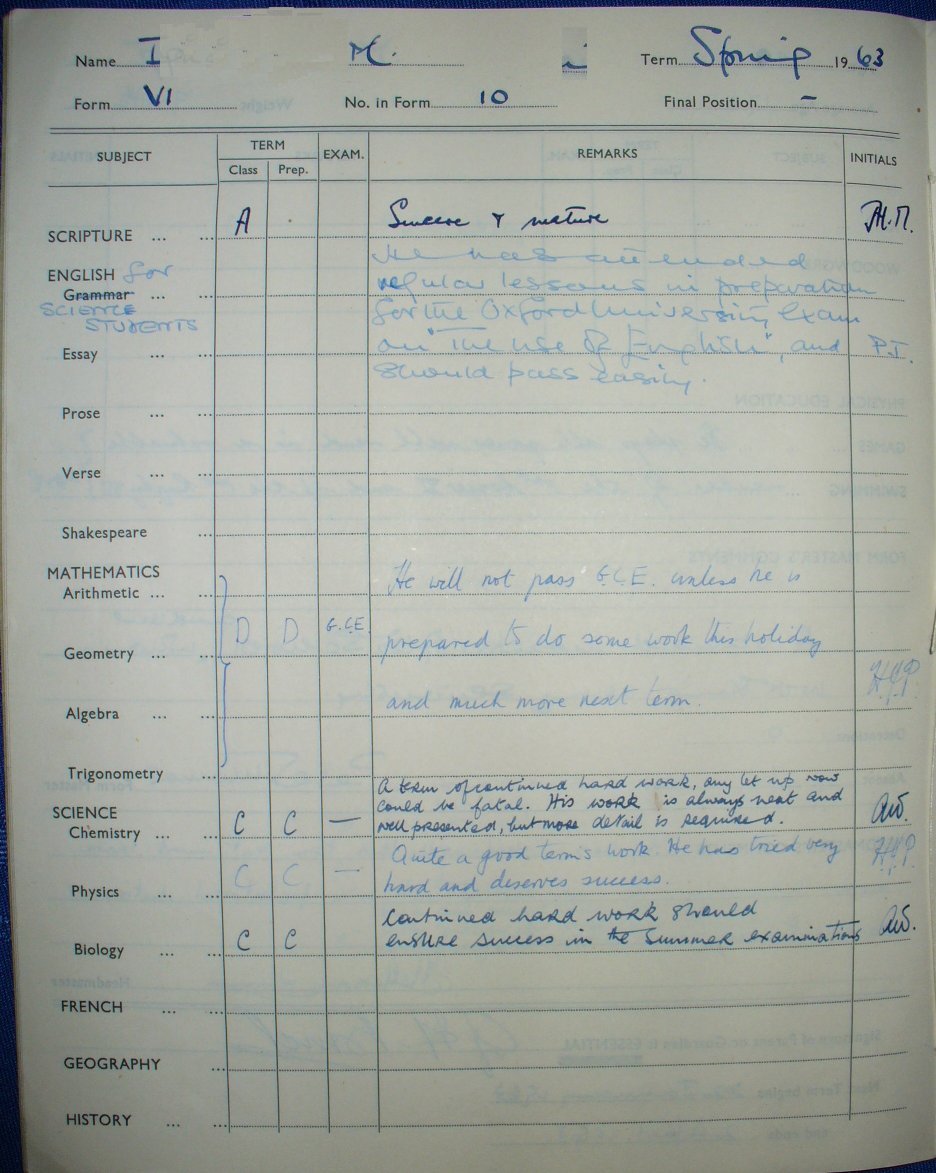 Name I M. i Term Spring 1963
Form VI No. in Form 10 Final Position –
SUBJECT TERM EXAM. REMARKS INITIALS
Class Prep.
SCRIPTURE ... ... A Sincere & mature
ENGLISH for He has attended
Grammar regular lessons in preparation
SCIENCE for the Oxford University Exam
STUDENTS
Essay ... ... on "The use of English", and P.I.
should pass easily.
Prose ... ...
Verse ... ...
Shakespeare ...
MATHEMATICS He will not pass G.C.E. unless he is
Arithmetic ... ...
D D G.C.E. prepared to do some work this holiday
Geometry ... ...
and much more next term. H.C.P.
Algebra ... ...
Trigonometry ...
A term of continued hard work, any let up now
SCIENCE could be fatal. His work is always neat and
Chemistry ... ... C C — well presented, but more detail is required.
C C — Quite a good term's work. He has tried very H.C.P.
Physics ... ... hard and deserves success.
Continued hard work should
Biology ... ... C C ensure success in the Summer examinations
FRENCH ... ...
GEOGRAPHY ...
HISTORY ... ...